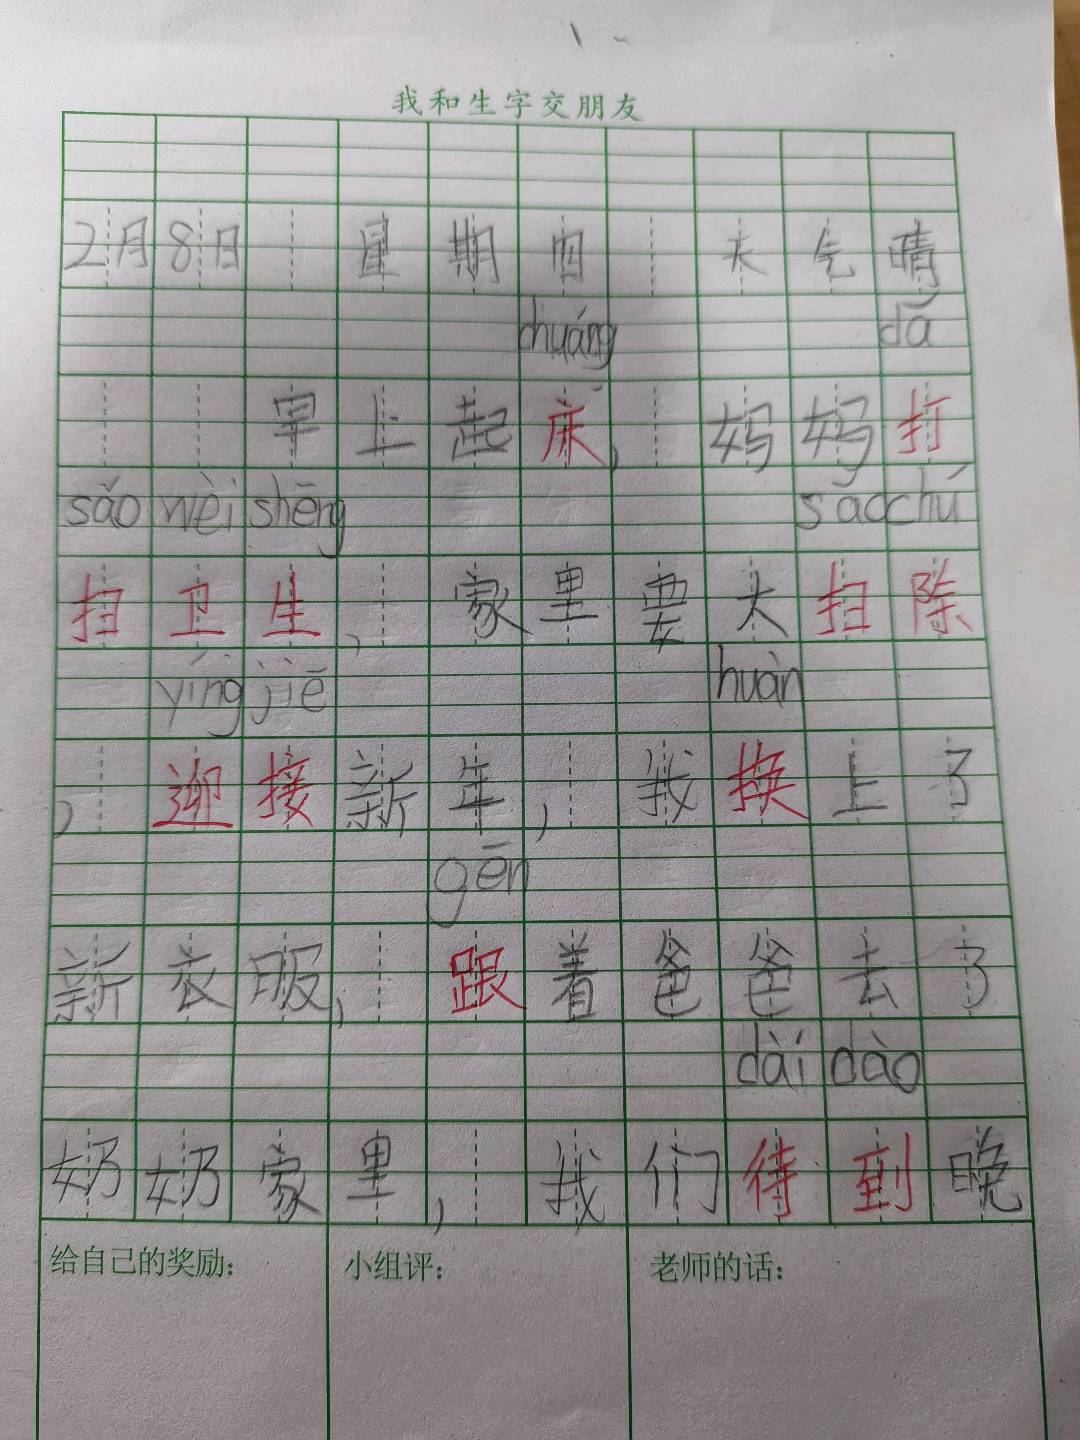 我和生字交朋友
2月8日 星期四 天气晴
chuáng dǎ
早上起床, 妈妈打
sǎo wèi shēng sǎo chú
扫卫生, 家里要大扫除
yíng jiē huàn
, 迎接新年, 我换上了
gēn
新衣服, 跟着爸爸去了
dài dào
奶奶家里, 我们待到晚
给自己的奖励: 小组评: 老师的话: